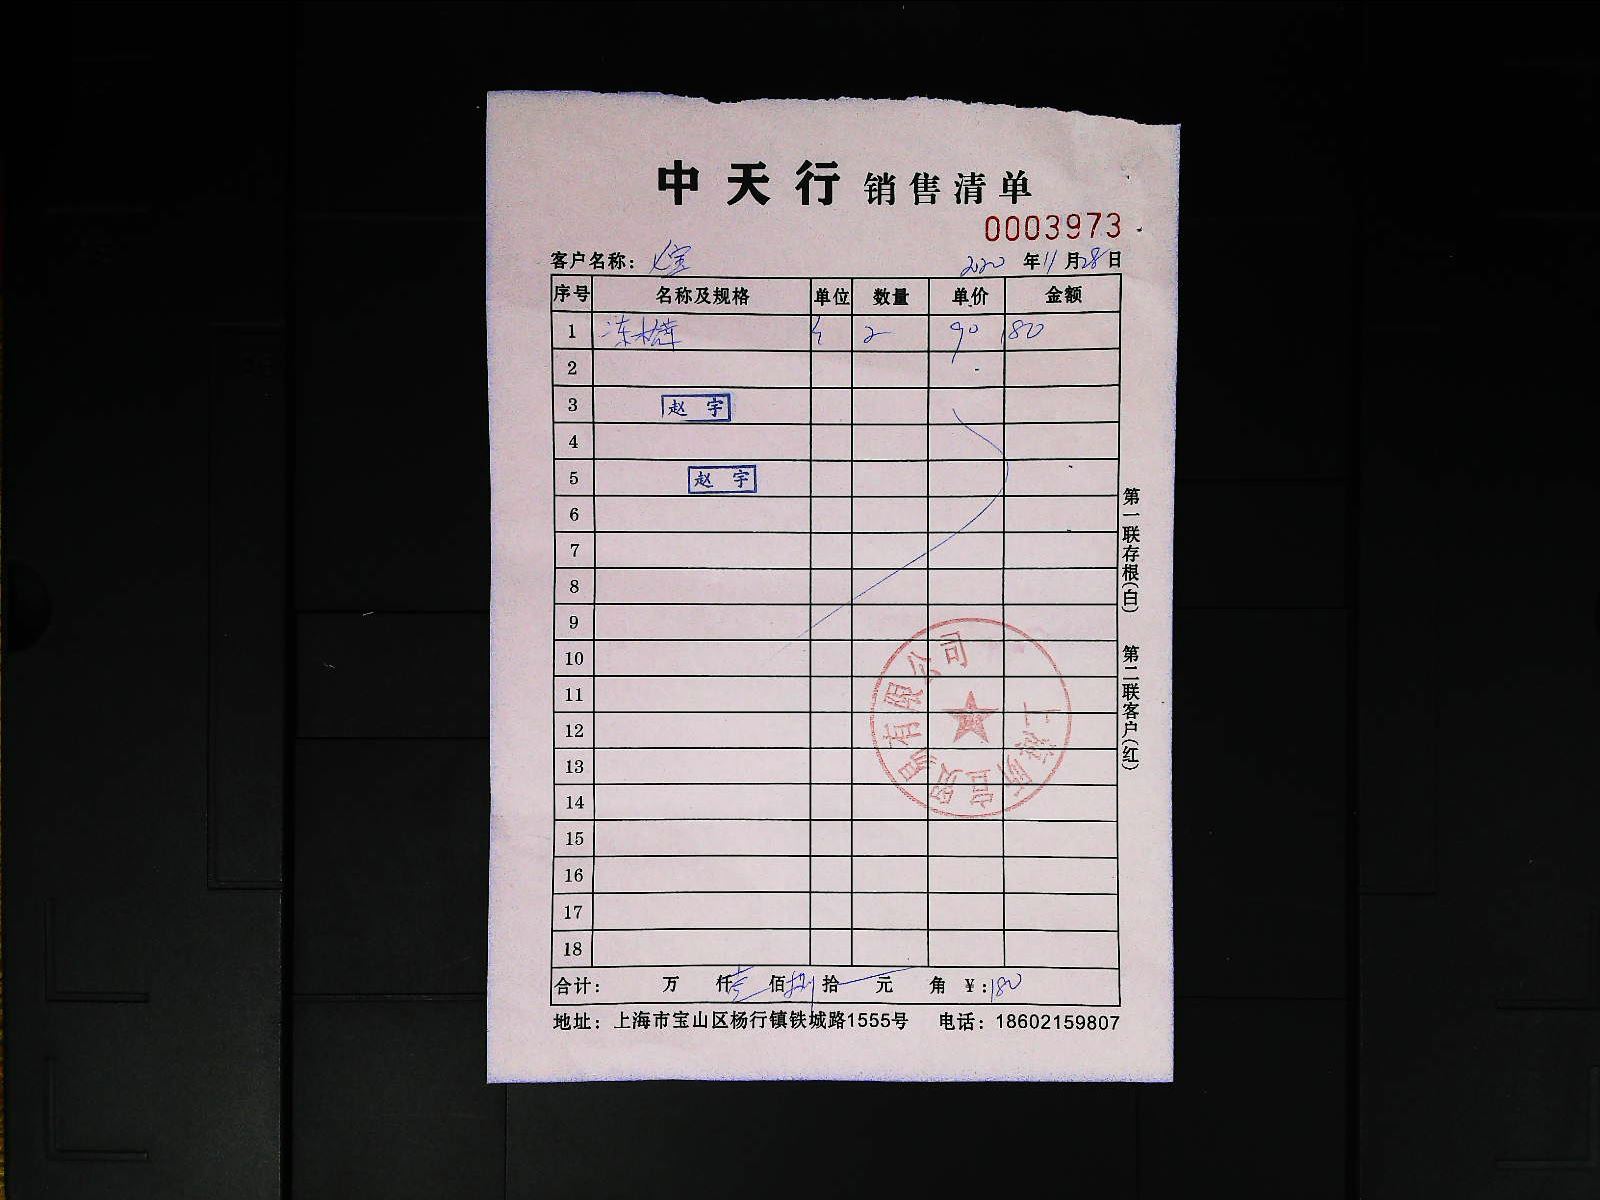 中天行 销售清单
0003973
客户名称： 2020 年 11 月 28 日
序号 名称及规格 单位 数量 单价 金额
1 冻 2 90 180
2
3 赵宇
4
5 赵宇
6
7
8
9
10
11
12
13
14
15
16
17
18
合计： 万 仟 壹 佰 捌 拾 元 角 ￥：180
地址：上海市宝山区杨行镇铁城路1555号 电话：18602159807
第一联存根（白） 第二联客户（红）